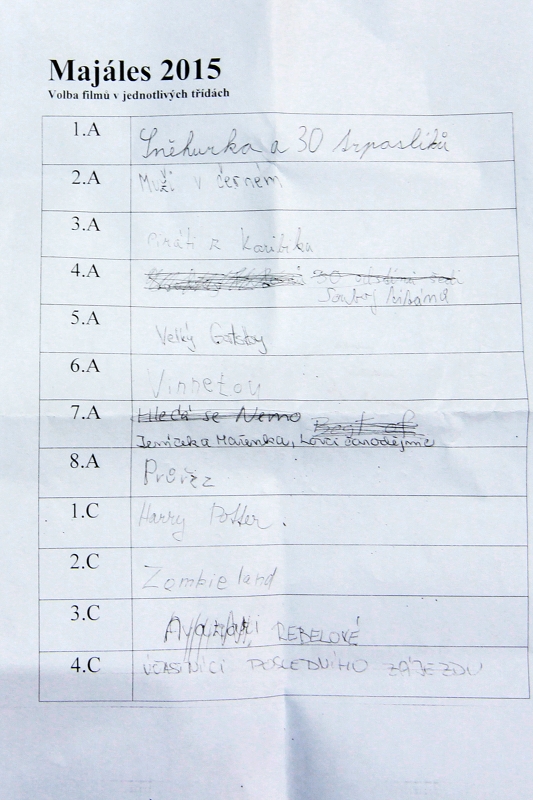 Majáles 2015
Volba filmů v jednotlivých třídách
1.A Sněhurka a 30 trpaslíků
2.A Muži v černém
3.A Piráti z Karibiku
4.A
Souboj titánů
5.A Velký Gatsby
6.A Vinnetou
7.A Hledá se Nemo Best of
Jeníček a Mařenka, Lovci čarodějnic
8.A Průřez
1.C Harry Potter.
2.C Zombieland
3.C REBELOVÉ
4.C ÚČASTNÍCI POSLEDNÍHO ZÁJEZDU